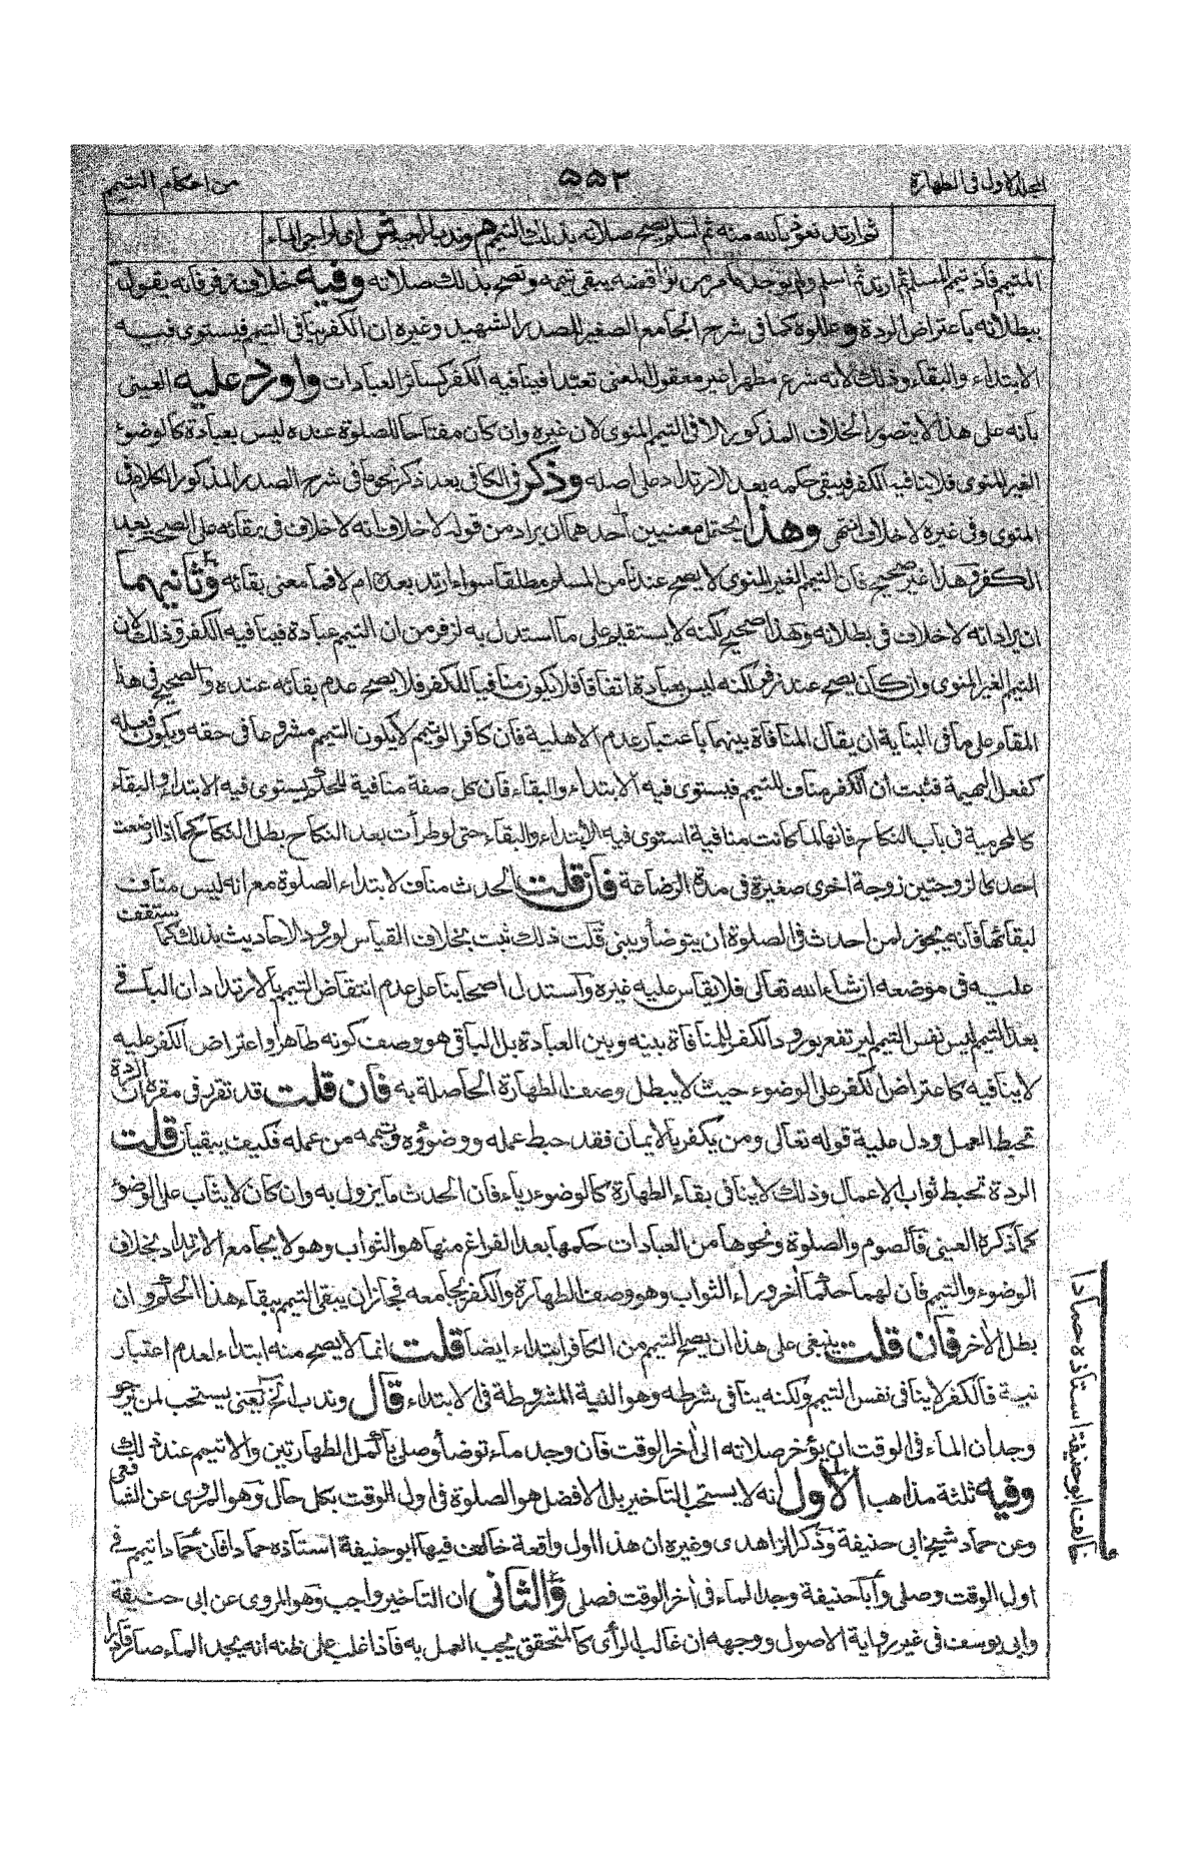 المجلد الاول فى الطهارة
٥٥٢
من احكام التيمم
ثم ارتد نعوذ بالله منه ثم اسلم يصح صلاته بذلك التيمم هم وندب لراجيه ش اى لراجى الماء
المتيمم فاذا تيمم المسلم ثم ارتد ثم اسلم ولم يوجد ما مر من نواقضه يبقى تيممه وتصح بذلك صلاته وفيه خلاف زفر فانه يقول
ببطلانه باعتراض الردة وعللوه كما فى شرح الجامع الصغير للصدر الشهيد وغيره ان الكفر ينافى التيمم فيستوى فيه
الابتداء والبقاء وذلك لانه شرع مطهرا غير معقول المعنى تعبدا فينافيه الكفر كسائر العبادات واورد عليه العينى
بانه على هذا لا يتصور الخلاف المذكور الا فى التيمم المنوى لان غيره وان كان مفتاحا للصلوة عنده ليس بعبادة كالوضوء
الغير المنوى فلا ينافيه الكفر فيبقى حكمه بعد الارتداد على اصله وذكر فى الكافى بعد ذكر نحو ما فى شرح الصدر المذكور الكلام فى
المنوى وفى غيره لا خلاف انتهى وهذا يحتمل معنيين احدهما ان يراد من قوله لا خلاف انه لا خلاف فى بقائه على الصحيح بعد
الكفر وهذا غير صحيح فان التيمم الغير المنوى لا يصح عندنا من المسلم مطلقا سواء ارتد بعده ام لا فما معنى بقائه وثانيهما
ان يراد انه لا خلاف فى بطلانه وهذا صحيح لكنه لا يستقيم على ما استدل به لزفر من ان التيمم عبادة فينافيه الكفر وذلك لان
التيمم الغير المنوى وان كان يصح عند زفر لكنه ليس بعبادة اتفاقا فلا يكون منافيا للكفر فلا يصح عدم بقائه عنده والصحيح فى هذا
المقام على ما فى البناية ان يقال المنافاة بينهما باعتبار عدم الاهلية فان كافرا لو تيمم لا يكون التيمم مشروعا فى حقه ويكون فعله
كفعل البهيمة فثبت ان الكفر مناف للتيمم فيستوى فيه الابتداء والبقاء فان كل صفة منافية للحكم يستوى فيه الابتداء والبقاء
كالمحرمية فى باب النكاح فانها لما كانت منافية استوى فيه الابتداء والبقاء حتى لو طرأت بعد النكاح بطل النكاح كما اذا ارضعت
احدى الزوجتين زوجة اخرى صغيرة فى مدة الرضاعة فان قلت الحدث مناف لابتداء الصلوة مع انه ليس مناف
لبقائها فانه يجوز لمن احدث فى الصلوة ان يتوضأ ويبنى قلت ذلك ثبت بخلاف القياس لورود الاحاديث بذلك كما ستقف
عليه فى موضعه ان شاء الله تعالى فلا يقاس عليه غيره واستدل اصحابنا على عدم انتقاض التيمم بالارتداد ان الباقى
بعد التيمم ليس نفس التيمم ليرتفع بورود الكفر للمنافاة بينه وبين العبادة بل الباقى هو وصف كونه طاهرا واعتراض الكفر عليه
لا ينافيه كاعتراض الكفر على الوضوء حيث لا يبطل وصف الطهارة الحاصلة به فان قلت قد تقرر فى مقره ان الردة
تحبط العمل ودل عليه قوله تعالى ومن يكفر بالايمان فقد حبط عمله ووضوؤه وتيممه من عمله فكيف يبقيان قلت
الردة تحبط ثواب الاعمال وذلك لا ينافى بقاء الطهارة كالوضوء رياء فان الحدث ما يزول به وان كان لا يثاب على الوضوء
كما ذكره العينى فالصوم والصلوة ونحوها من العبادات حكمها بعد الفراغ منها هو الثواب وهو لا يجامع الارتداد بخلاف
الوضوء والتيمم فان لهما حكما آخر وراء الثواب وهو وصف الطهارة والكفر يجامعه فجاز ان يبقى التيمم ببقاء هذا الحكم وان
بطل الآخر فان قلت ينبغى على هذا ان يصح التيمم من الكافر ابتداء ايضا قلت انما لا يصح منه ابتداء لعدم اعتبار
نيية فالكفر لا ينافى نفس التيمم ولكنه ينافى شرطه وهو النية المشروطة فى الابتداء قال وندب الخ يعنى يستحب لمن يرجو
وجدان الماء فى الوقت ان يؤخر صلاته الى آخر الوقت فان وجد ماء توضأ وصلى باكمل الطهارتين والا تيمم عند ذلك
وفيه ثلثة مذاهب الاول انه لا يستحب التاخير بل الافضل هو الصلوة فى اول الوقت بكل حال وهو المروى عن الشافعى
وعن حماد شيخ ابى حنيفة وذكر الزاهدى وغيره ان هذا اول واقعة خالف فيها ابو حنيفة استاذه حمادا فان حمادا تيمم فى
اول الوقت وصلى وابا حنيفة وجد الماء فى آخر الوقت فصلى والثانى ان التاخير واجب وهو المروى عن ابى حنيفة
وابى يوسف فى غير رواية الاصول ووجهه ان غالب الرأى كالمتحقق يجب العمل به فاذا غلب على ظنه انه يجد الماء صار قادرا
خالف ابو حنيفة استاذه حمادا